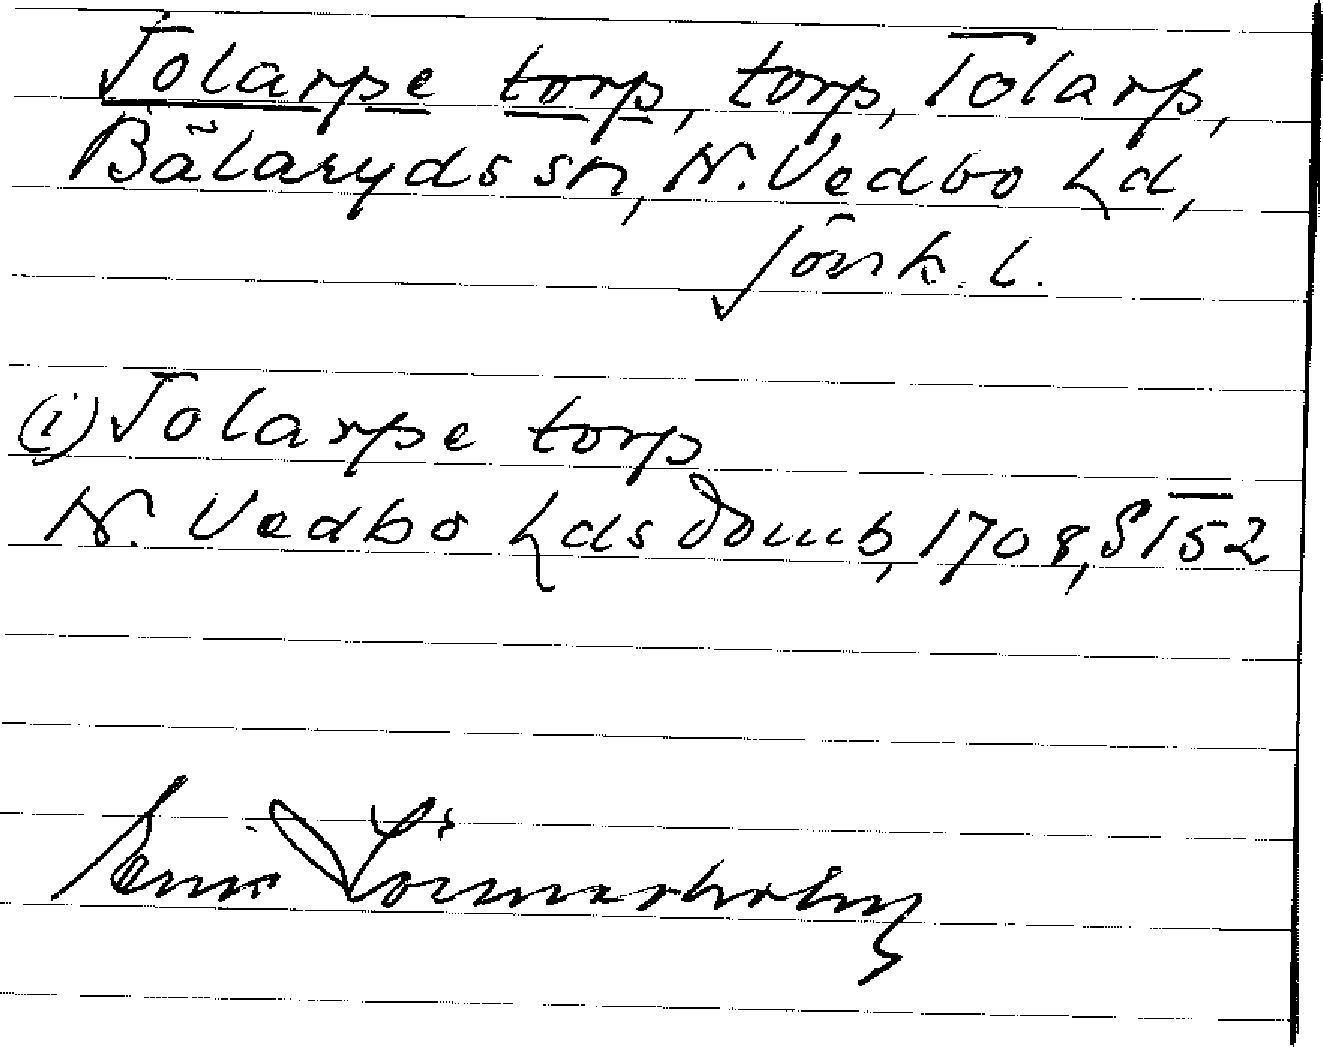 Tolarpe torp, torp, Tolarp,
Bälaryds sn, N. Vedbo hd,
Jönk. l.
(i) Tolarpe torp
N. Vedbo hds domb, 1708, § 152